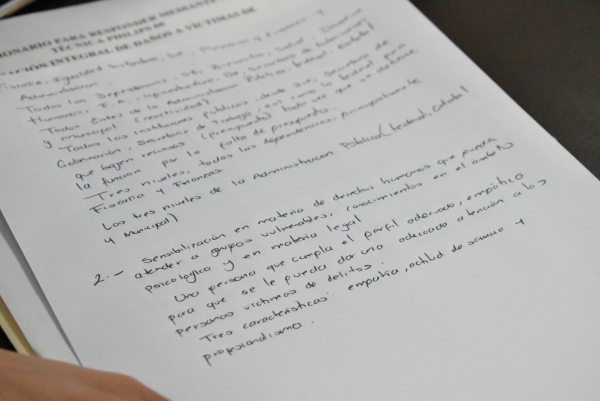 IONARIO PARA RESPONDER MEDIANTE
TÉCNICA PHILIPS 66
INTEGRAL DE DAÑOS A VÍCTIMAS DE
Administración.
Todas las Dependencias,
Humanos,
Todos Entes de la Administración Pública, federal, estatal
y Municipal (reactivada)
Todas las instituciones públicas, desde sre, secretaria de
Gobernación, Secretaria de Trabajo, así como la federal para
que bajen recursos (presupuesto) toda vez que se detiene
la función por la falta de presupuesto.
Tres niveles, todas las dependencias, principalmente
Fiscalía y Finanzas
Los tres niveles de la Administración Pública (federal, estatal
y Municipal)
2.- Sensibilización en materia de derechos humanos que pueda
atender a grupos vulnerables, conocimientos en el ámbito
psicológico y en materia legal
Una persona que cumpla el perfil adecuado, empático
para que se le pueda dar una adecuada atención a los
personas víctimas de delitos.
Tres características: empatía, actitud de servicio y
profesionalismo.